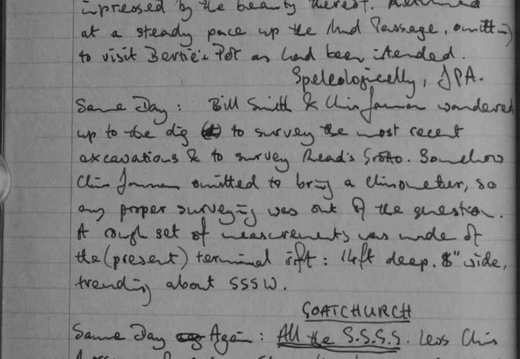 impressed by the beauty thereof. Returned
at a steady pace up the Mud Passage, omitting
to visit Bertie's Pot as had been intended.
Speleologically, JPA.
Same Day: Bill Smith & Chris Jarman wandered
up to the dig to survey the most recent
excavations & to survey Read's Grotto. Somehow
Chris Jarman omitted to bring a clinometer, so
any proper surveying was out of the question.
A rough set of measurements was made of
the (present) terminal rift: 14ft deep. 8" wide,
trending about SSSW.
GOATCHURCH
Same Day Again: All the S.S.S.S. less Chris